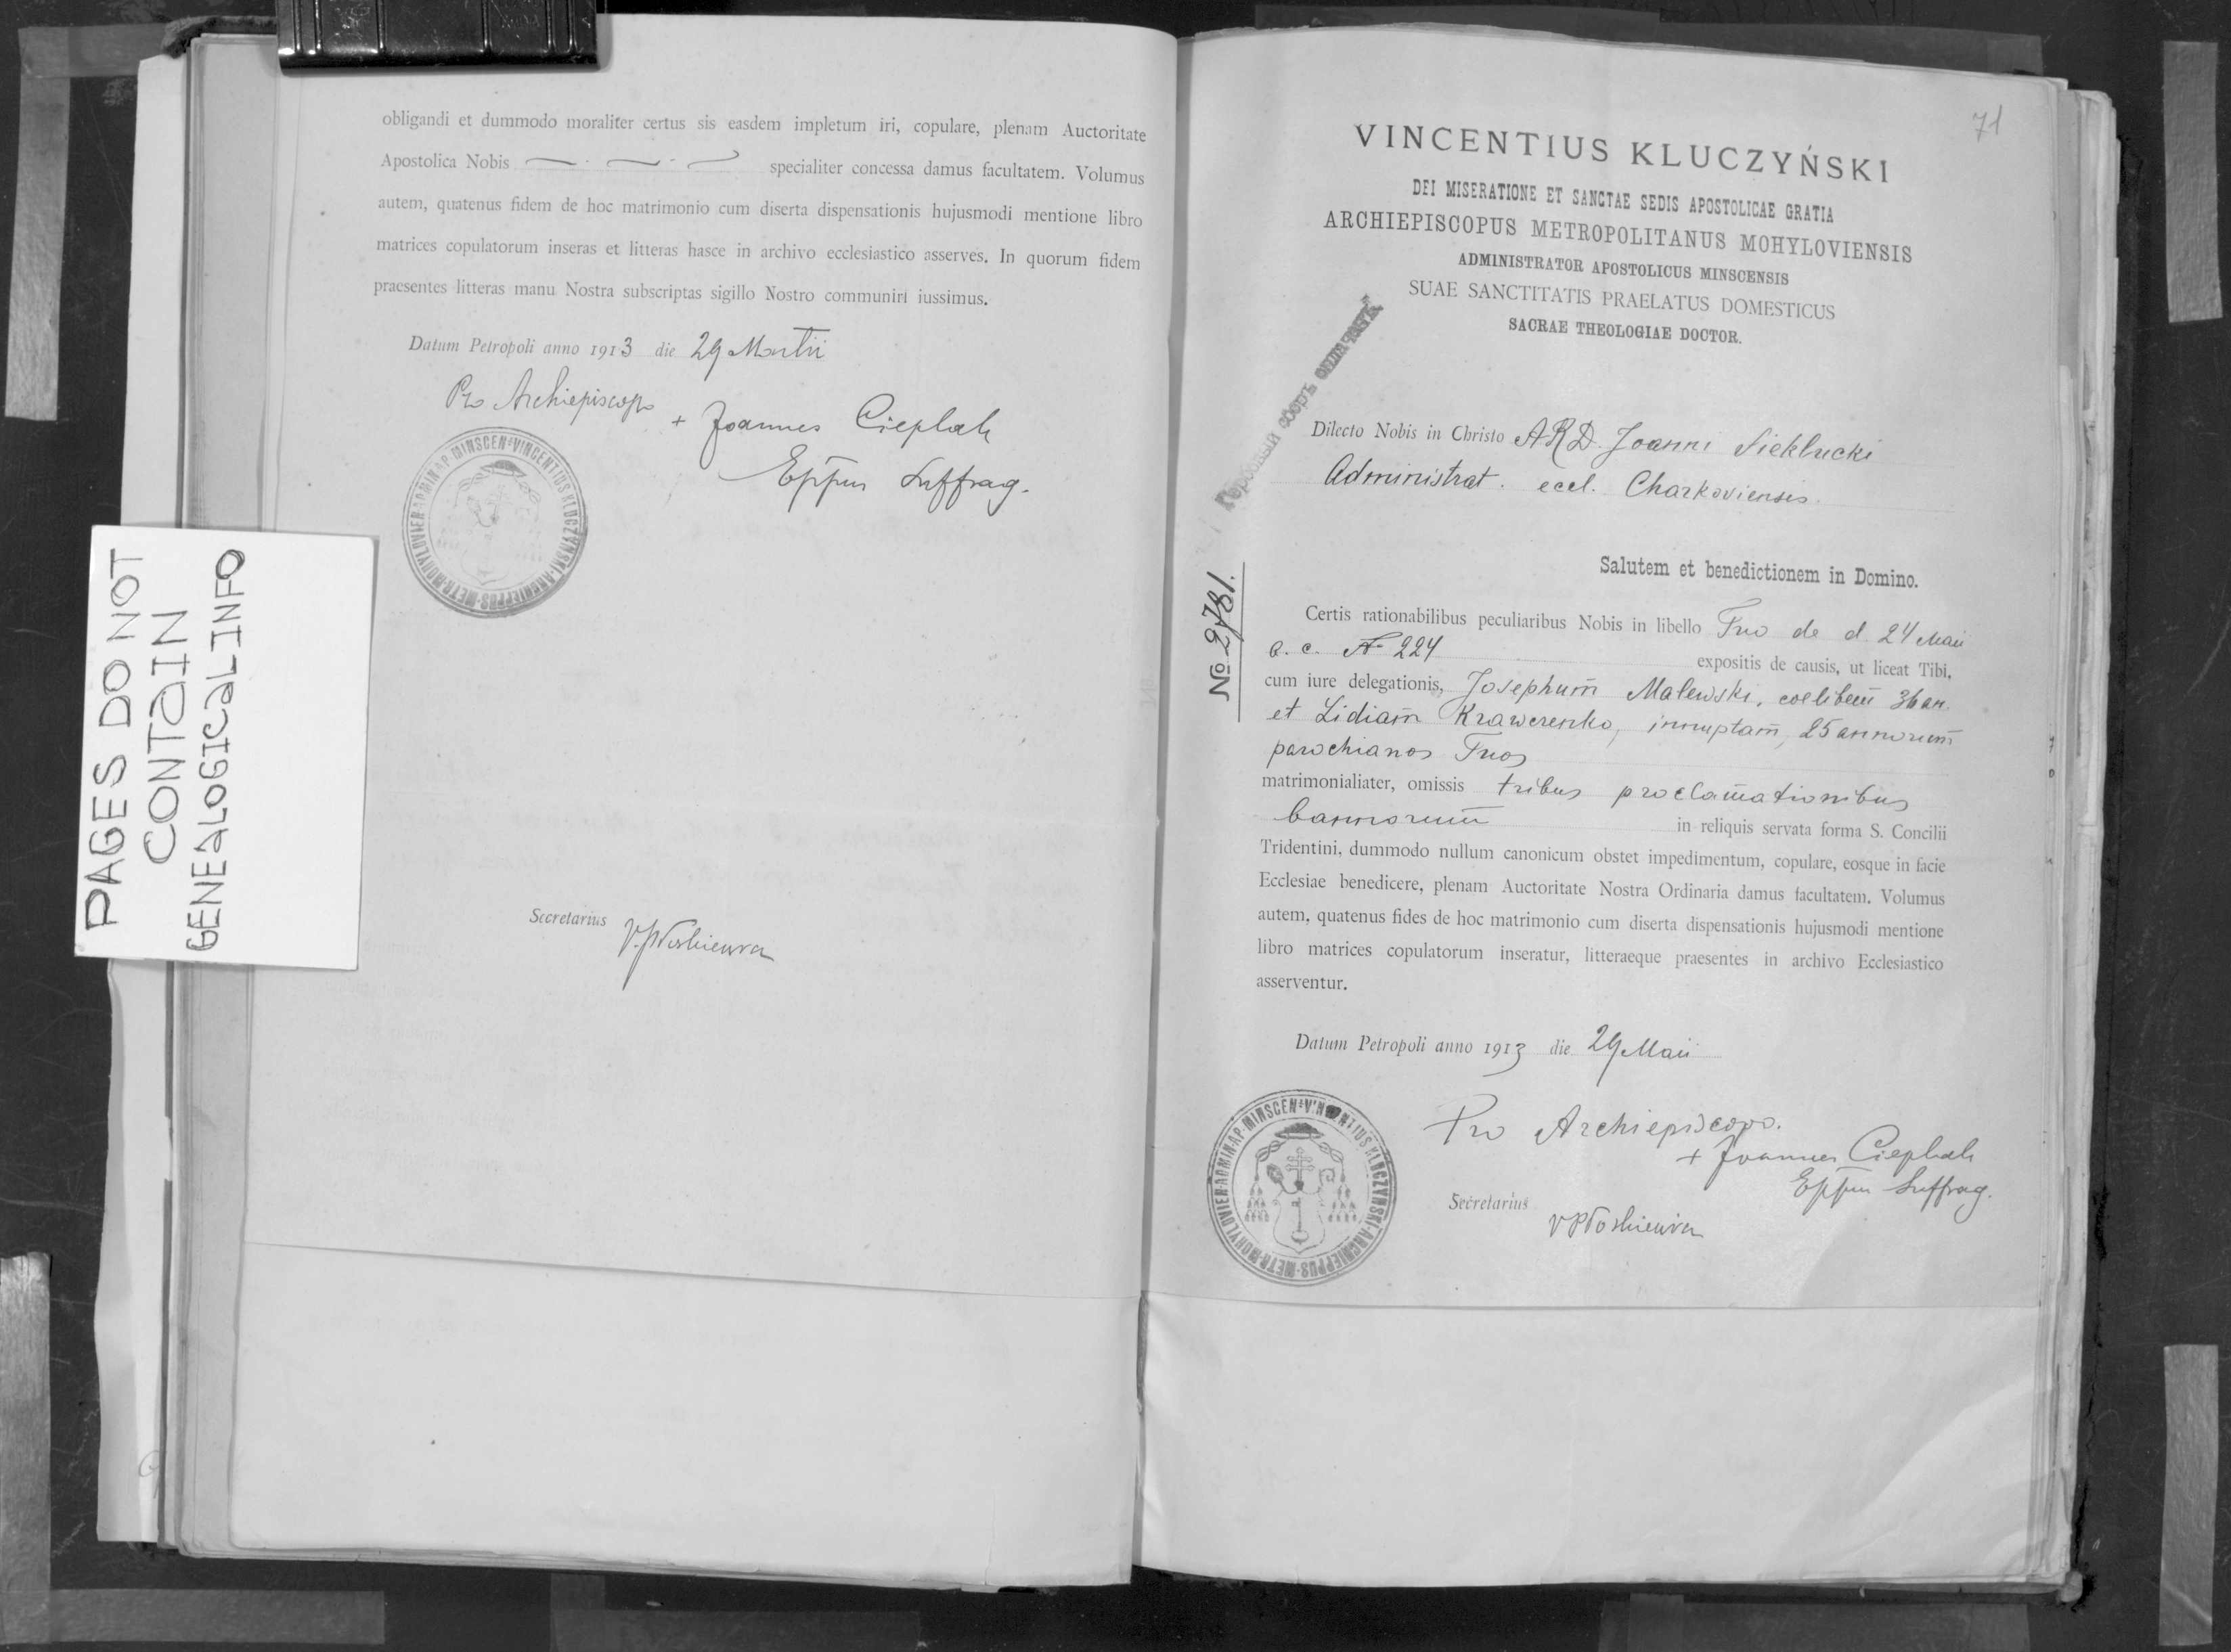 obligandi et dummodo moraliter certus sis easdem impletum iri, copulare, plenam Auctoritate
Apostolica Nobis specialiter concessa damus facultatem. Volumus
autem, quatenus fidem de hoc matrimonio cum diserta dispensationis hujusmodi mentione libro
matrices copulatorum inseras et litteras hasce in archivo ecclesiastico asserves. In quorum fidem
praesentes litteras manu Nostra subscriptas sigillo Nostro communiri iussimus.
Datum Petropoli anno 1913 die 29 Martii
Pro Archiepiscopo
+ Joannes Cieplak
Eppus Suffrag.
VINCENTIUS KLUCZYNSKI ARCHIEPPUS METR MOHYLOVIEN ADMIN AP MINSCEN
Secretarius
PAGES DO NOT
CONTAIN
GENEALOGICAL INFO
71
VINCENTIUS KLUCZYŃSKI
DEI MISERATIONE ET SANCTAE SEDIS APOSTOLICAE GRATIA
ARCHIEPISCOPUS METROPOLITANUS MOHYLOVIENSIS
ADMINISTRATOR APOSTOLICUS MINSCENSIS
SUAE SANCTITATIS PRAELATUS DOMESTICUS
SACRAE THEOLOGIAE DOCTOR.
Гербовый сборъ
Dilecto Nobis in Christo A.R.D. Joanni Sieklucki
Administrat. eccl. Charkoviensis
Salutem et benedictionem in Domino.
№ 2781.
Certis rationabilibus peculiaribus Nobis in libello Tuo de d. 24 Maii
a. c. № 224 expositis de causis, ut liceat Tibi,
cum iure delegationis, Josephum̄ Malewski, coelibem 36 an.
et Lidiam̄ Krawczenko, innuptam̄, 25 annorum̄
parochianos Tuos
matrimonialiater, omissis tribus proclamationibus
bannorum̄ in reliquis servata forma S. Concilii
Tridentini, dummodo nullum canonicum obstet impedimentum, copulare, eosque in facie
Ecclesiae benedicere, plenam Auctoritate Nostra Ordinaria damus facultatem. Volumus
autem, quatenus fides de hoc matrimonio cum diserta dispensationis hujusmodi mentione
libro matrices copulatorum inseratur, litteraeque praesentes in archivo Ecclesiastico
asserventur.
Datum Petropoli anno 1913 die 29 Maii
Pro Archiepiscopo.
+ Joannes Cieplak
Eppus Suffrag.
VINCENTIUS KLUCZYNSKI ARCHIEPPUS METR MOHYLOVIEN ADMIN AP MINSCEN
Secretarius